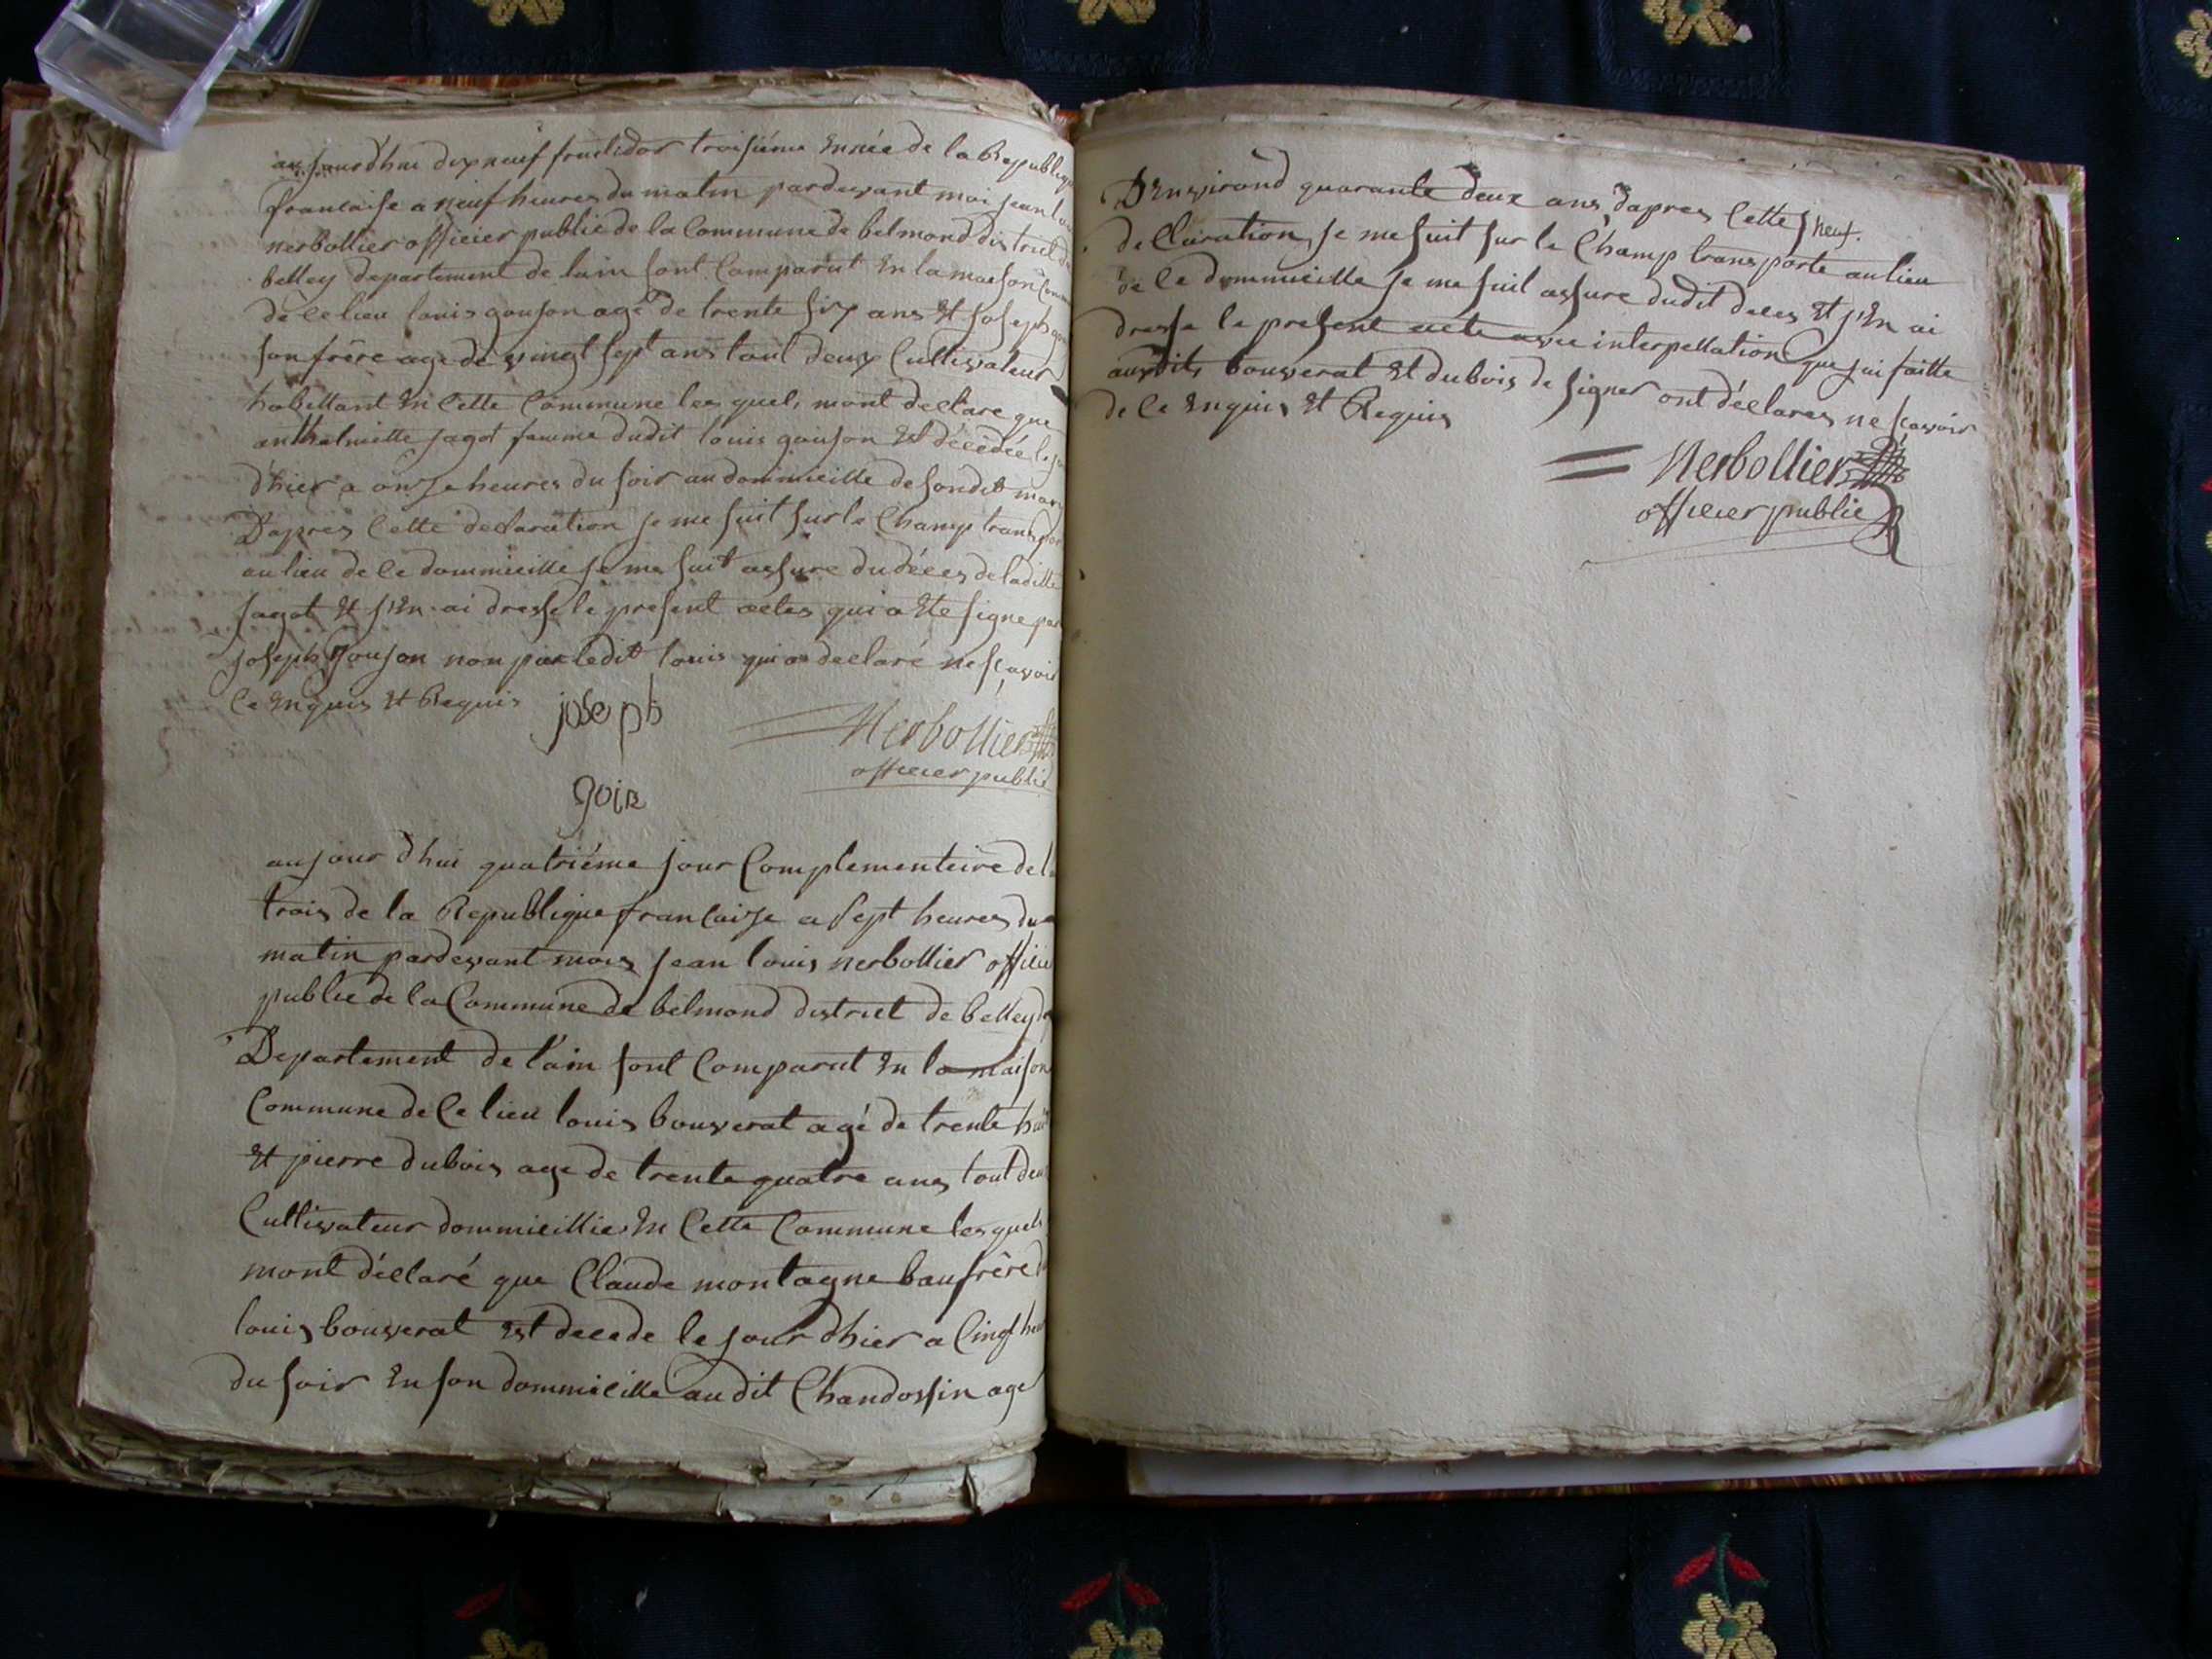 aujourd'hui dixneuf fructidor troisiéme Année de la Republiqu
francaise a neuf heures du matin pardevant moi jean lou
nerbollier officier public de la Commune de belmond district de
belley departement de lain sont Comparut En la maison Com
de Ce lieu louis goujon agé de trente six ans Et joseph gou
son frère age de vingt sept ans tout deux Cultivateur
habittant En Cette Commune les quel, mont declare que
anthelmette jagot femme dudit louis goujon Est décédée le jou
d'hier a onze heures du soir au dommicille de sondit mary
D'apres Cette declaration je me suit sur le Champ transpor
au lieu de Ce dommicille je me suit assure du déces de laditte
jagot Et j'En ai dresse le present actes qui a Ete signe par
joseph goujon non par ledit louis qui a declaré ne scavoir
Ce Enquis Et Requis
joseph
Nerbollier
officier public
goin
aujour d'hui quatriéme jour Complementeire de l
trois de la Republique francaise a sept heures du
matin pardevant mois jean louis nerbollier offici
public de la Commune de belmond district de belley
Departement de l'ain sont Comparut En la maison
Commune de Ce lieu louis bouverat agé de trente hui
Et pierre dubois age de trente quatre ans tout deu
Cultivateur dommicillie En Cette Commune lesquels
mont déclaré que Claude montagne baufrère d
louis bouverat Est decede le jour d'hier a Cinq heu
du soir En son dommicille audit Chandossin age
D'Environd quarante deux ans, dapres Cette neuf.
declaration, je me suit sur le Champ transporte au lieu
de Ce dommicille je me suit assure dudit deces Et j'En ai
dresse le present acte avec interpellation que jai faitte
auxdits bouverat Et dubois de signer ont déclares ne scavoir
de Ce Enquis Et Requis
Nerbollier
officier public